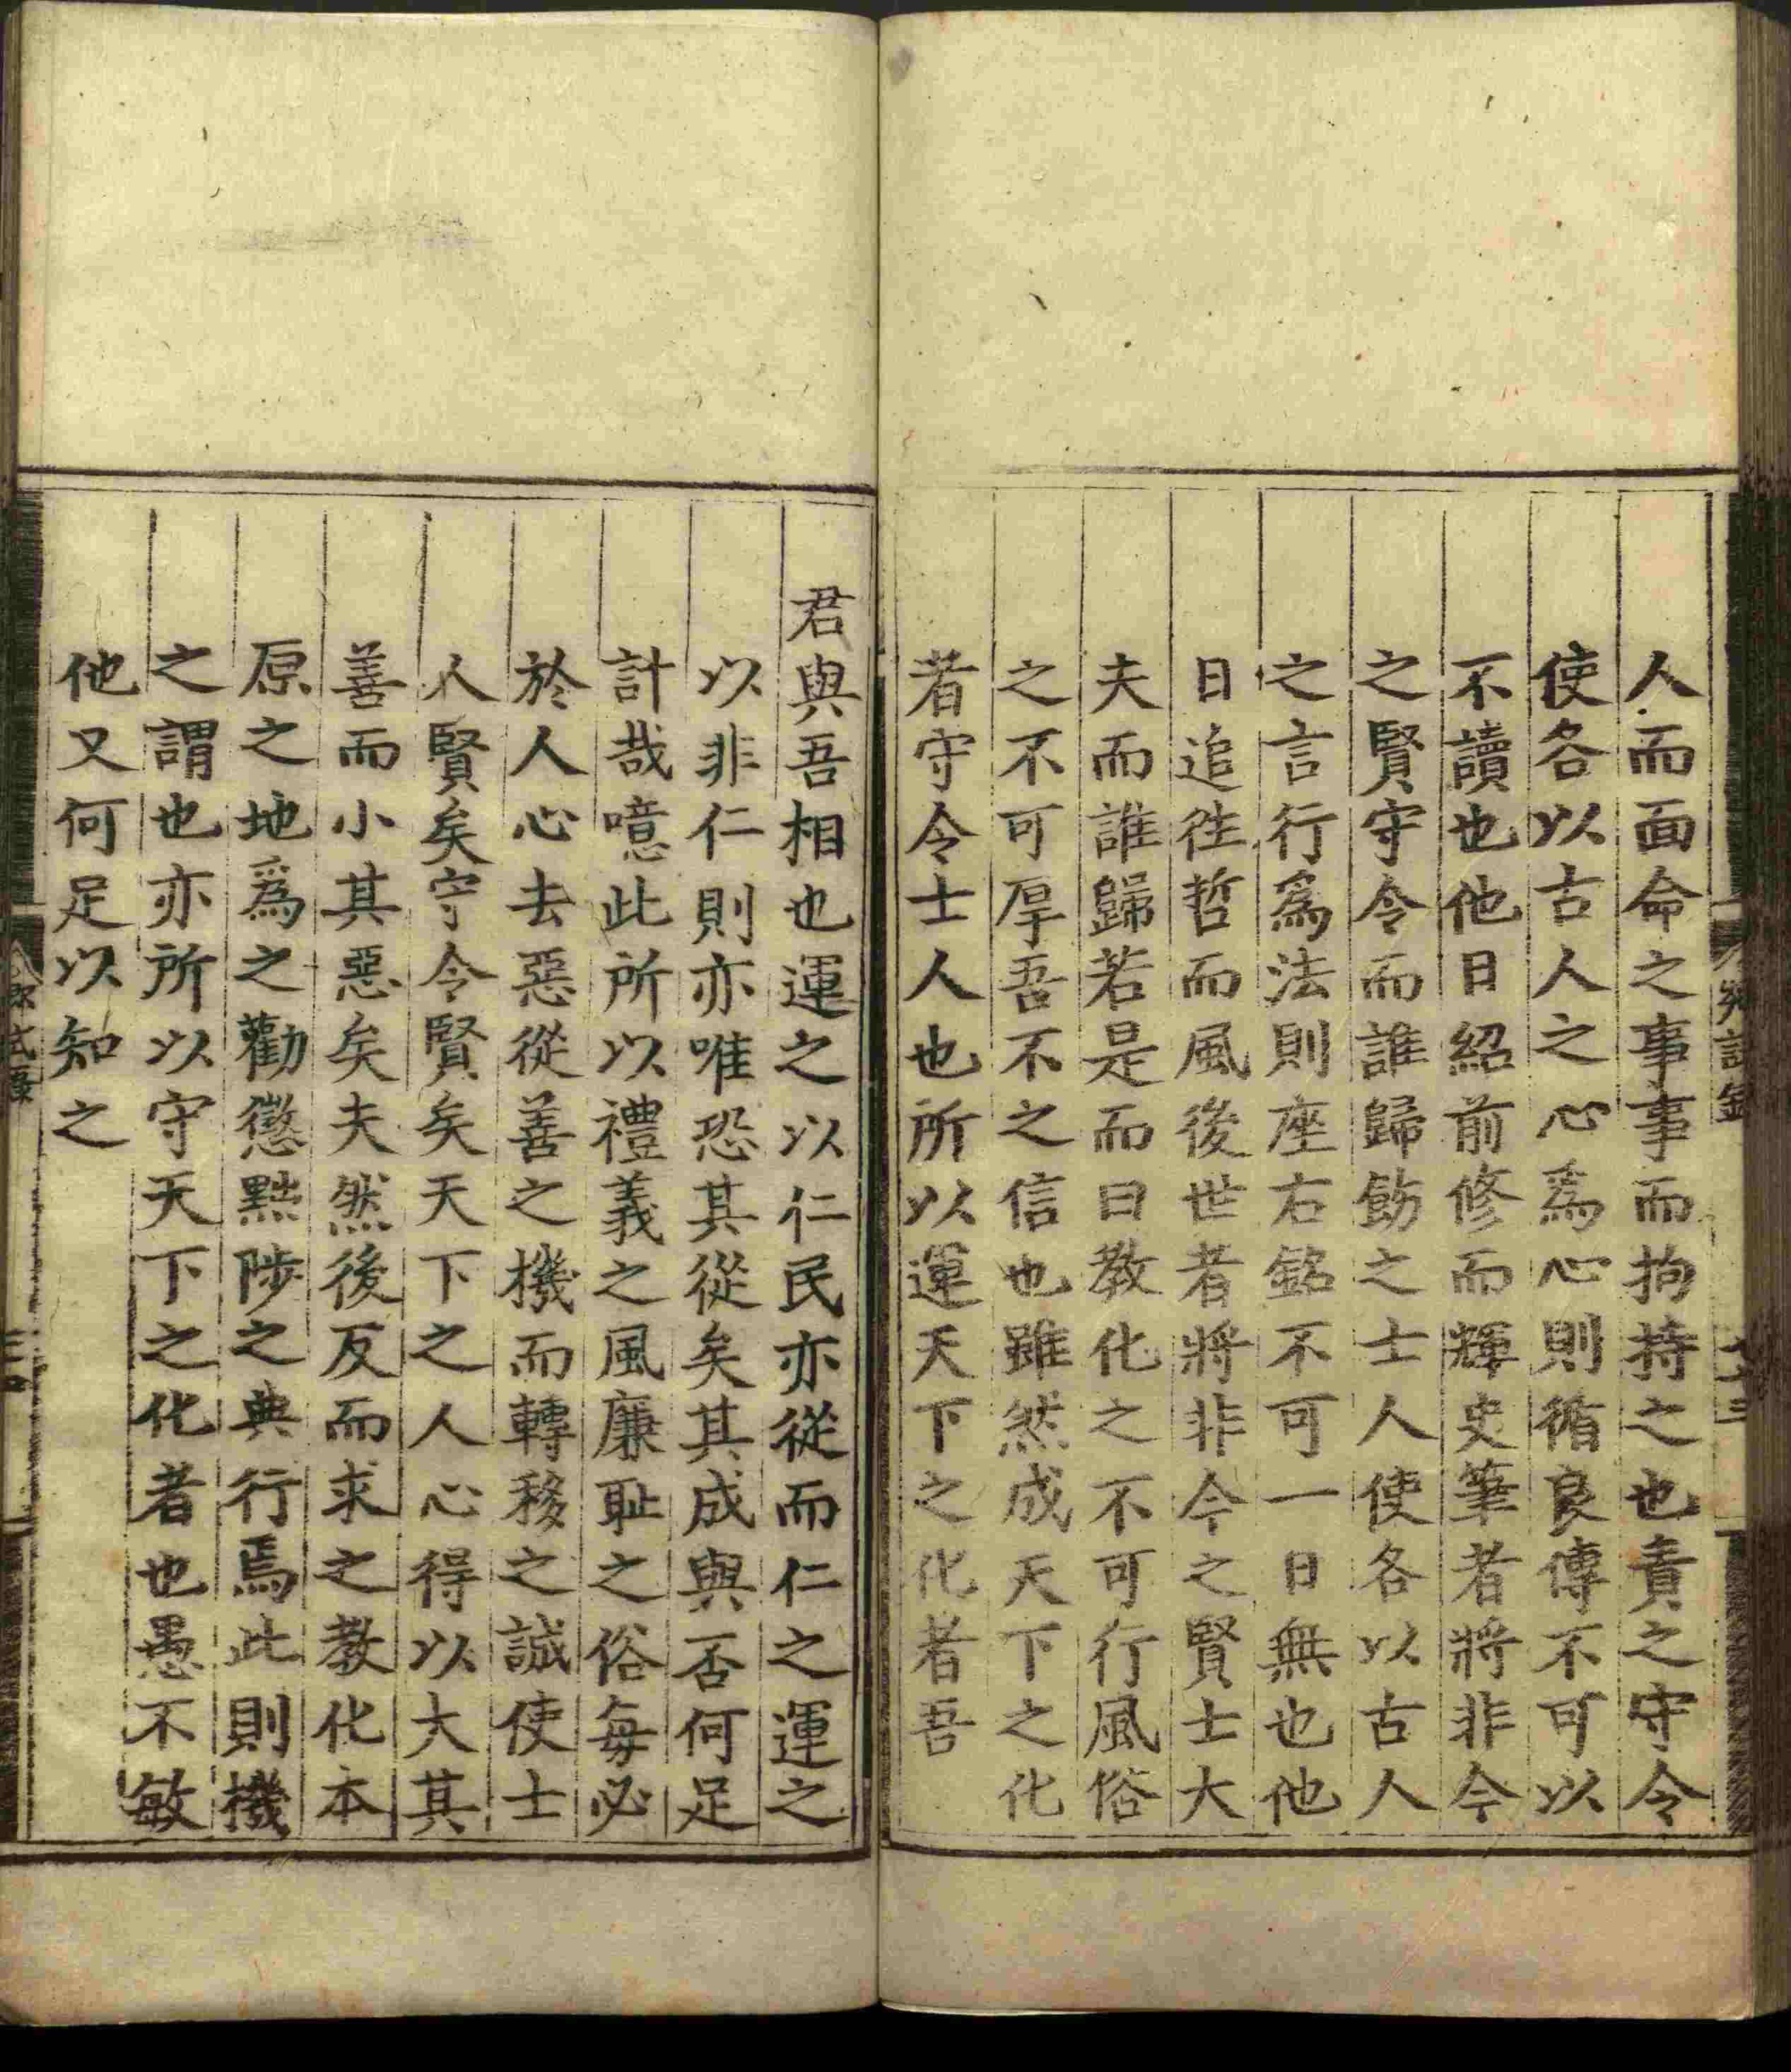 人而面命之事事而拘持之也責之守令
使各以古人之心爲心則循良傳不可以
不讀也他日紹前修而輝史筆者將非今
之賢守令而誰歸飭之士人使各以古人
之言行爲法則座右銘不可一日無也他
日追徃哲而風後世者將非今之賢士大
夫而誰歸若是而曰教化之不可行風俗
之不可厚吾不之信也雖然成天下之化
者守令士人也所以運天下之化者吾
君與吾相也運之以仁民亦從而仁之運之
以非仁則亦唯恐其從矣其成與否何足
計哉噫此所以禮義之風廉恥之俗每必
於人心去惡從善之機而轉移之誠使士
人賢矣守令賢矣天下之人心得以大其
善而小其惡矣夫然後反而求之教化本
原之地爲之勸懲黜陟之典行焉此則機
之謂也亦所以守天下之化者也愚不敏
他又何足以知之